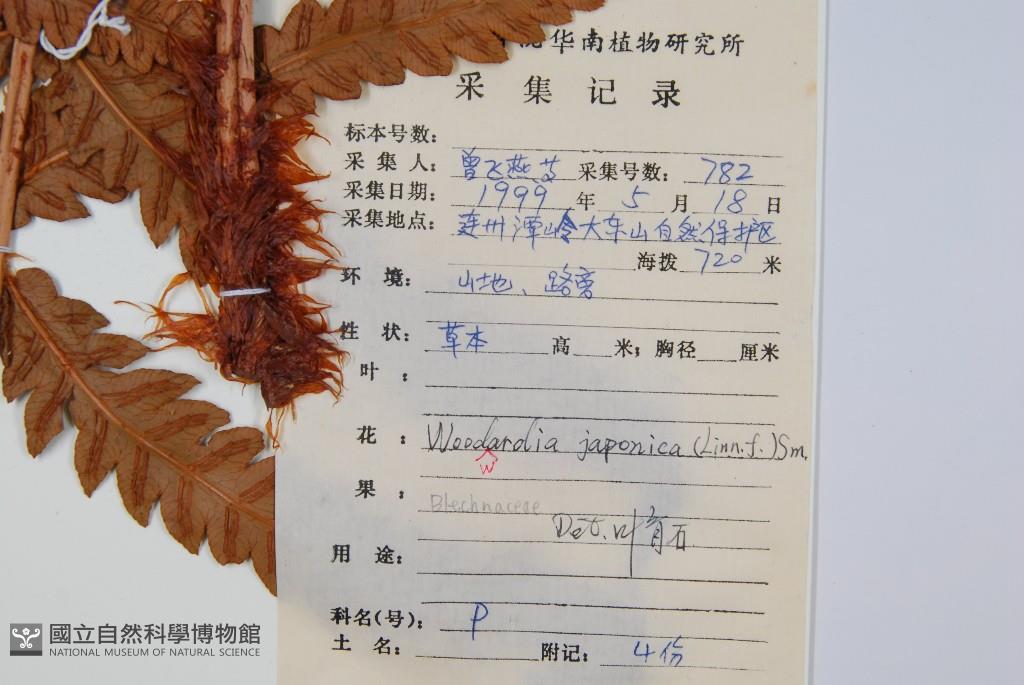 华南植物研究所
采集记录
标本号数:
采集人: 曾飞燕等 采集号数: 782
采集日期: 1999 年 5 月 18 日
采集地点: 连州潭岭大东山自然保护区
海拨 720 米
环境: 山地、路旁
性状: 草本 高 米; 胸径 厘米
叶:
花: Woodardia japonica (Linn.f.) Sm.
w
果:
Blechnaceae
Det. 叶育石
用途:
科名(号): P
土名: 附记: 4份
國立自然科學博物館
NATIONAL MUSEUM OF NATURAL SCIENCE